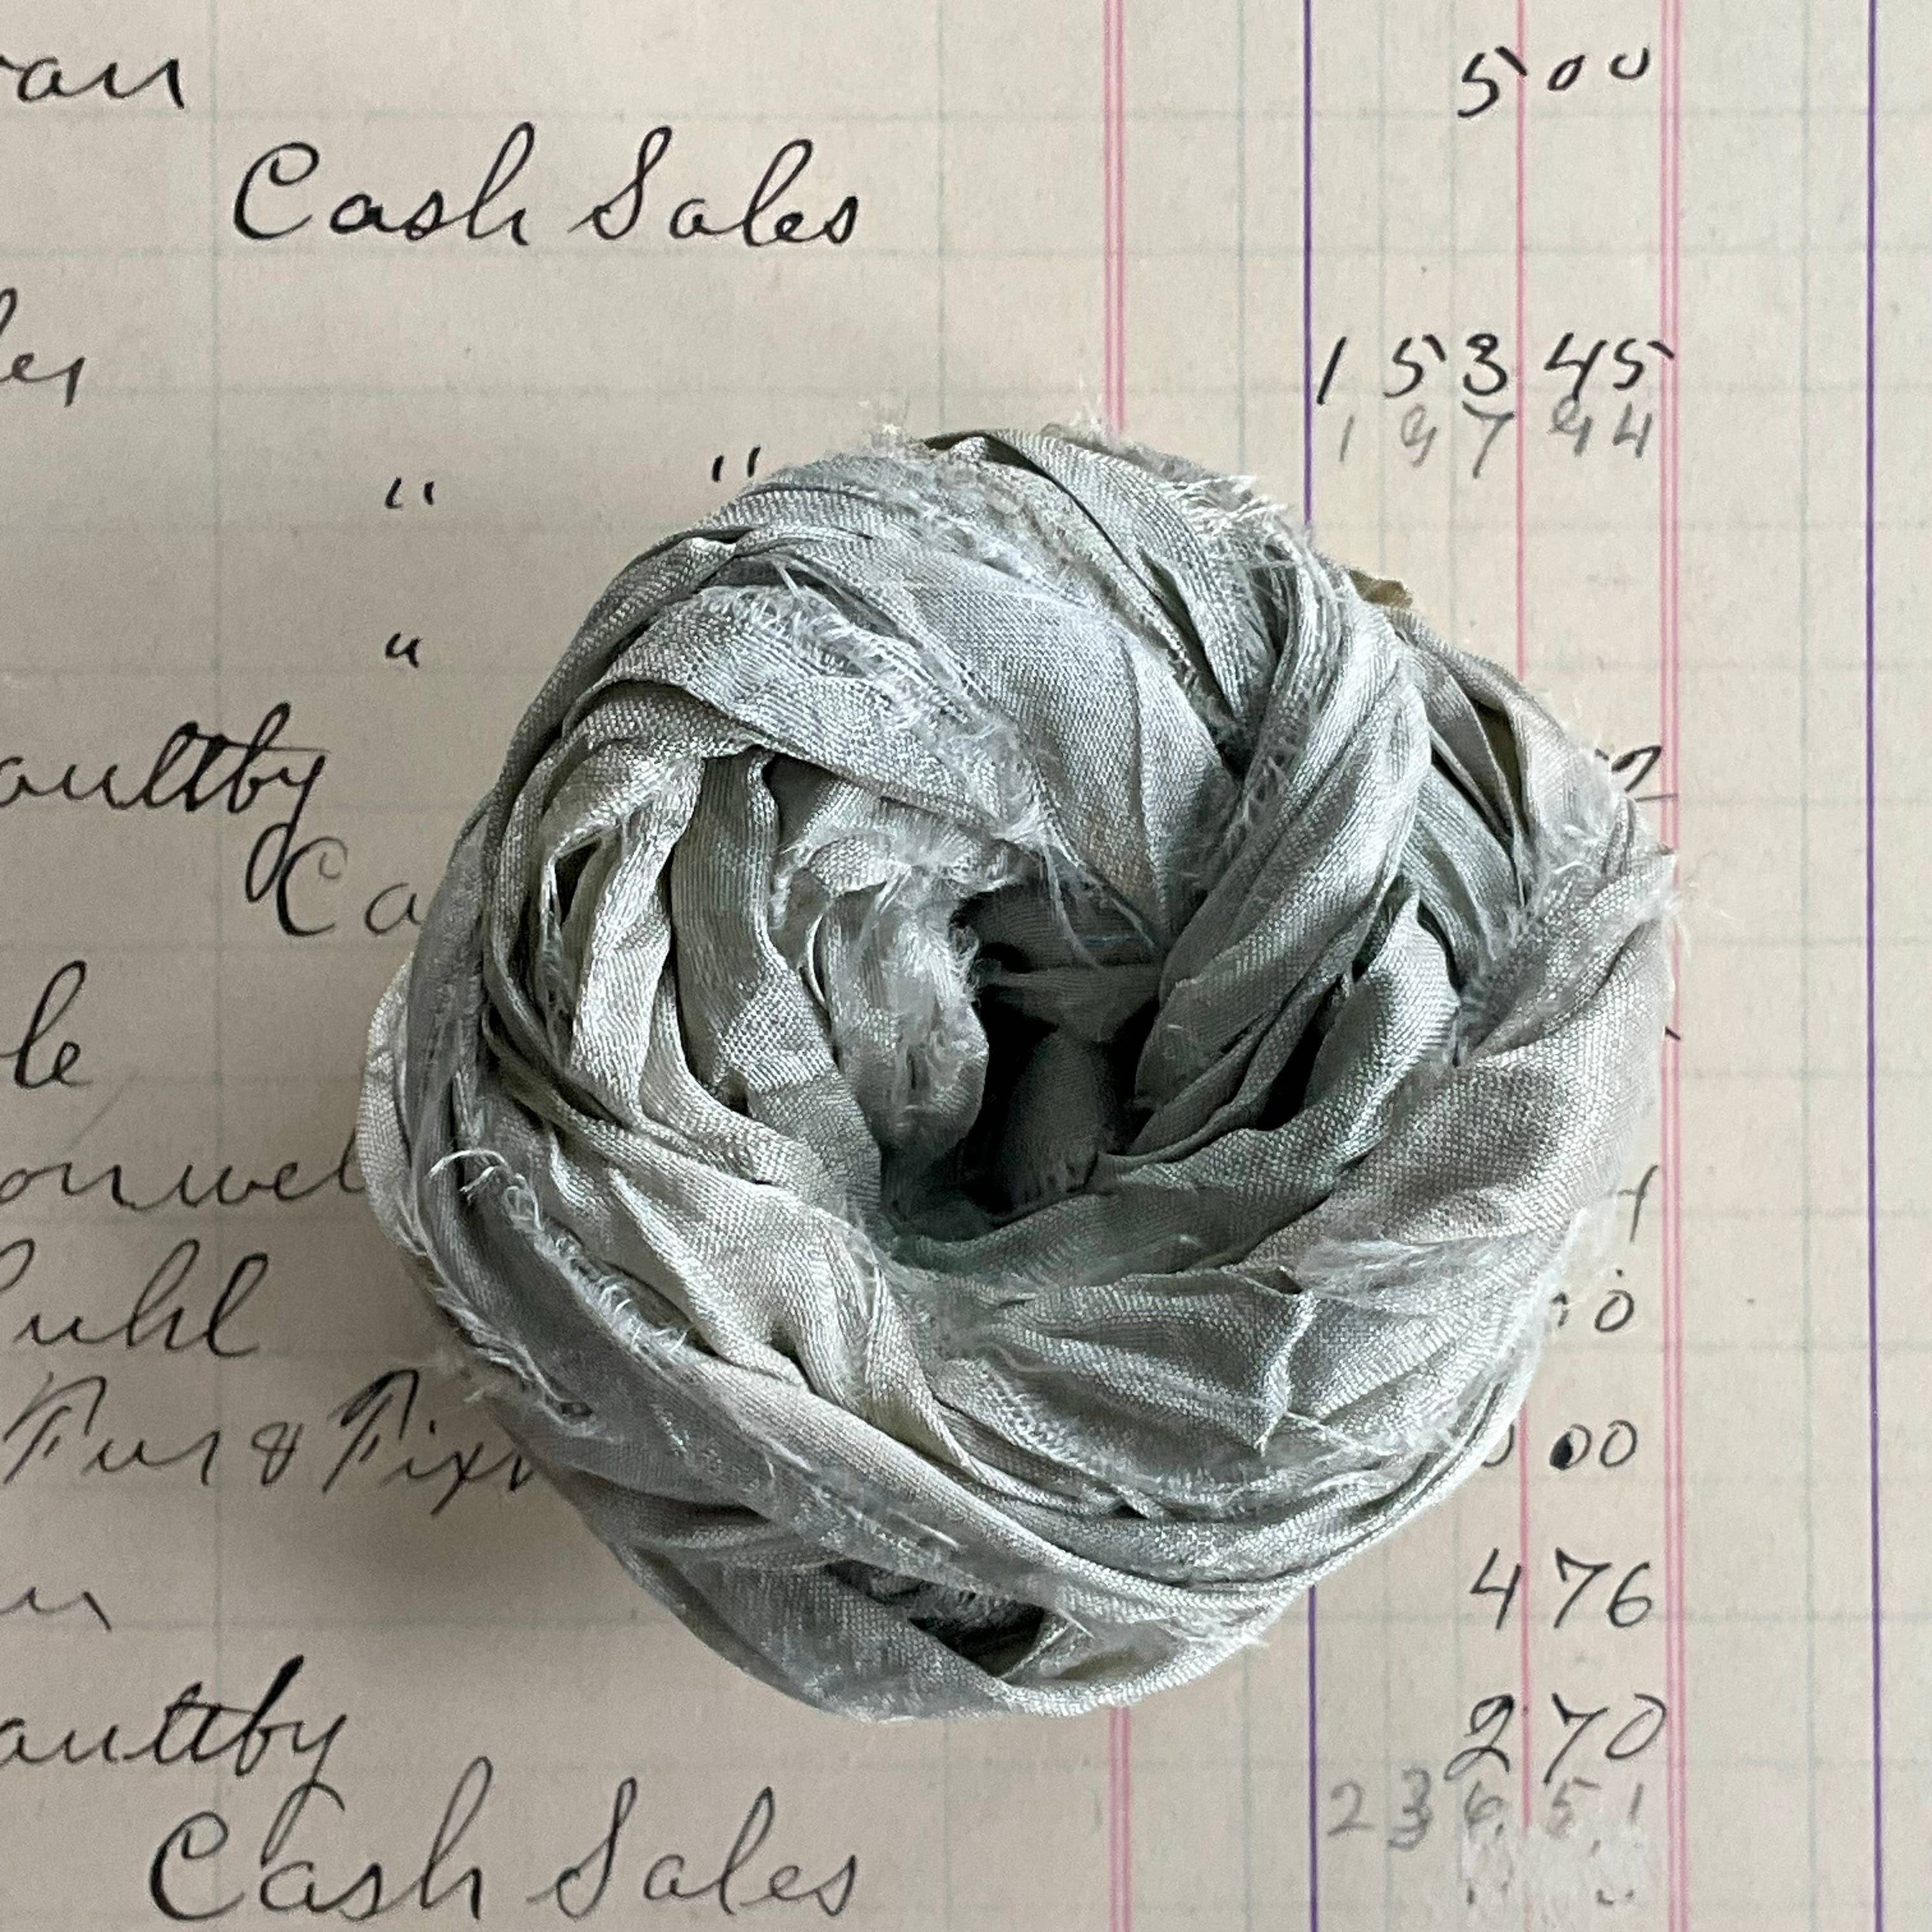 5 00
Cash Sales
1 53 45
1 97 94
" "
"
aultby
Ca
le
onwel
uhl
Fur & Fix
00
4 76
aultby
2 70
2 36 51
Cash Sales